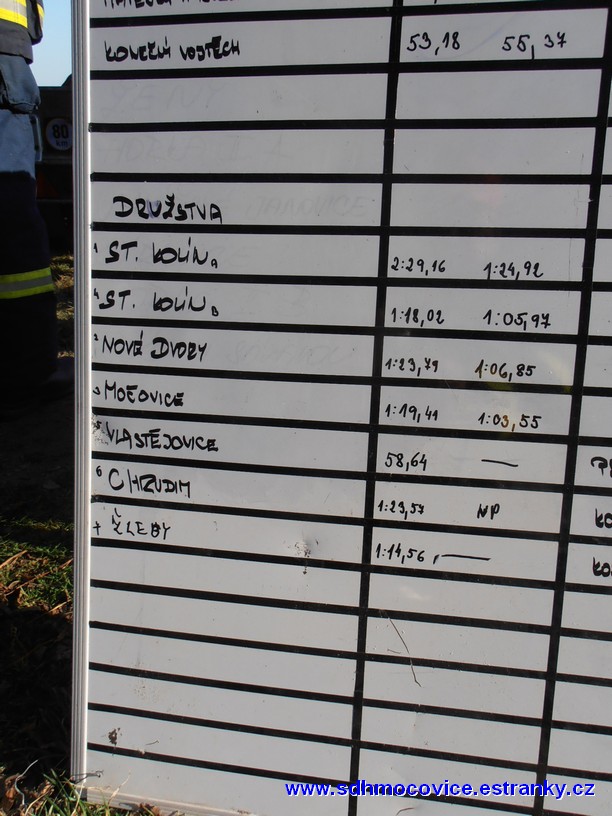 KONEČNÝ VOJTĚCH 53,18 55,37
DRUŽSTVA
1 ST. KOLÍN A 2:29,16 1:24,92
4 ST. KOLÍN B 1:18,02 1:05,97
2 NOVÉ DVORY 1:23,79 1:06,85
3 MOČOVICE 1:19,41 1:03,55
5 VLASTĚJOVICE 58,64 —
6 CHRUDIM 1:23,57 NP
7 ŽLEBY 1:14,56, —
80
www.sdhmocovice.estranky.cz